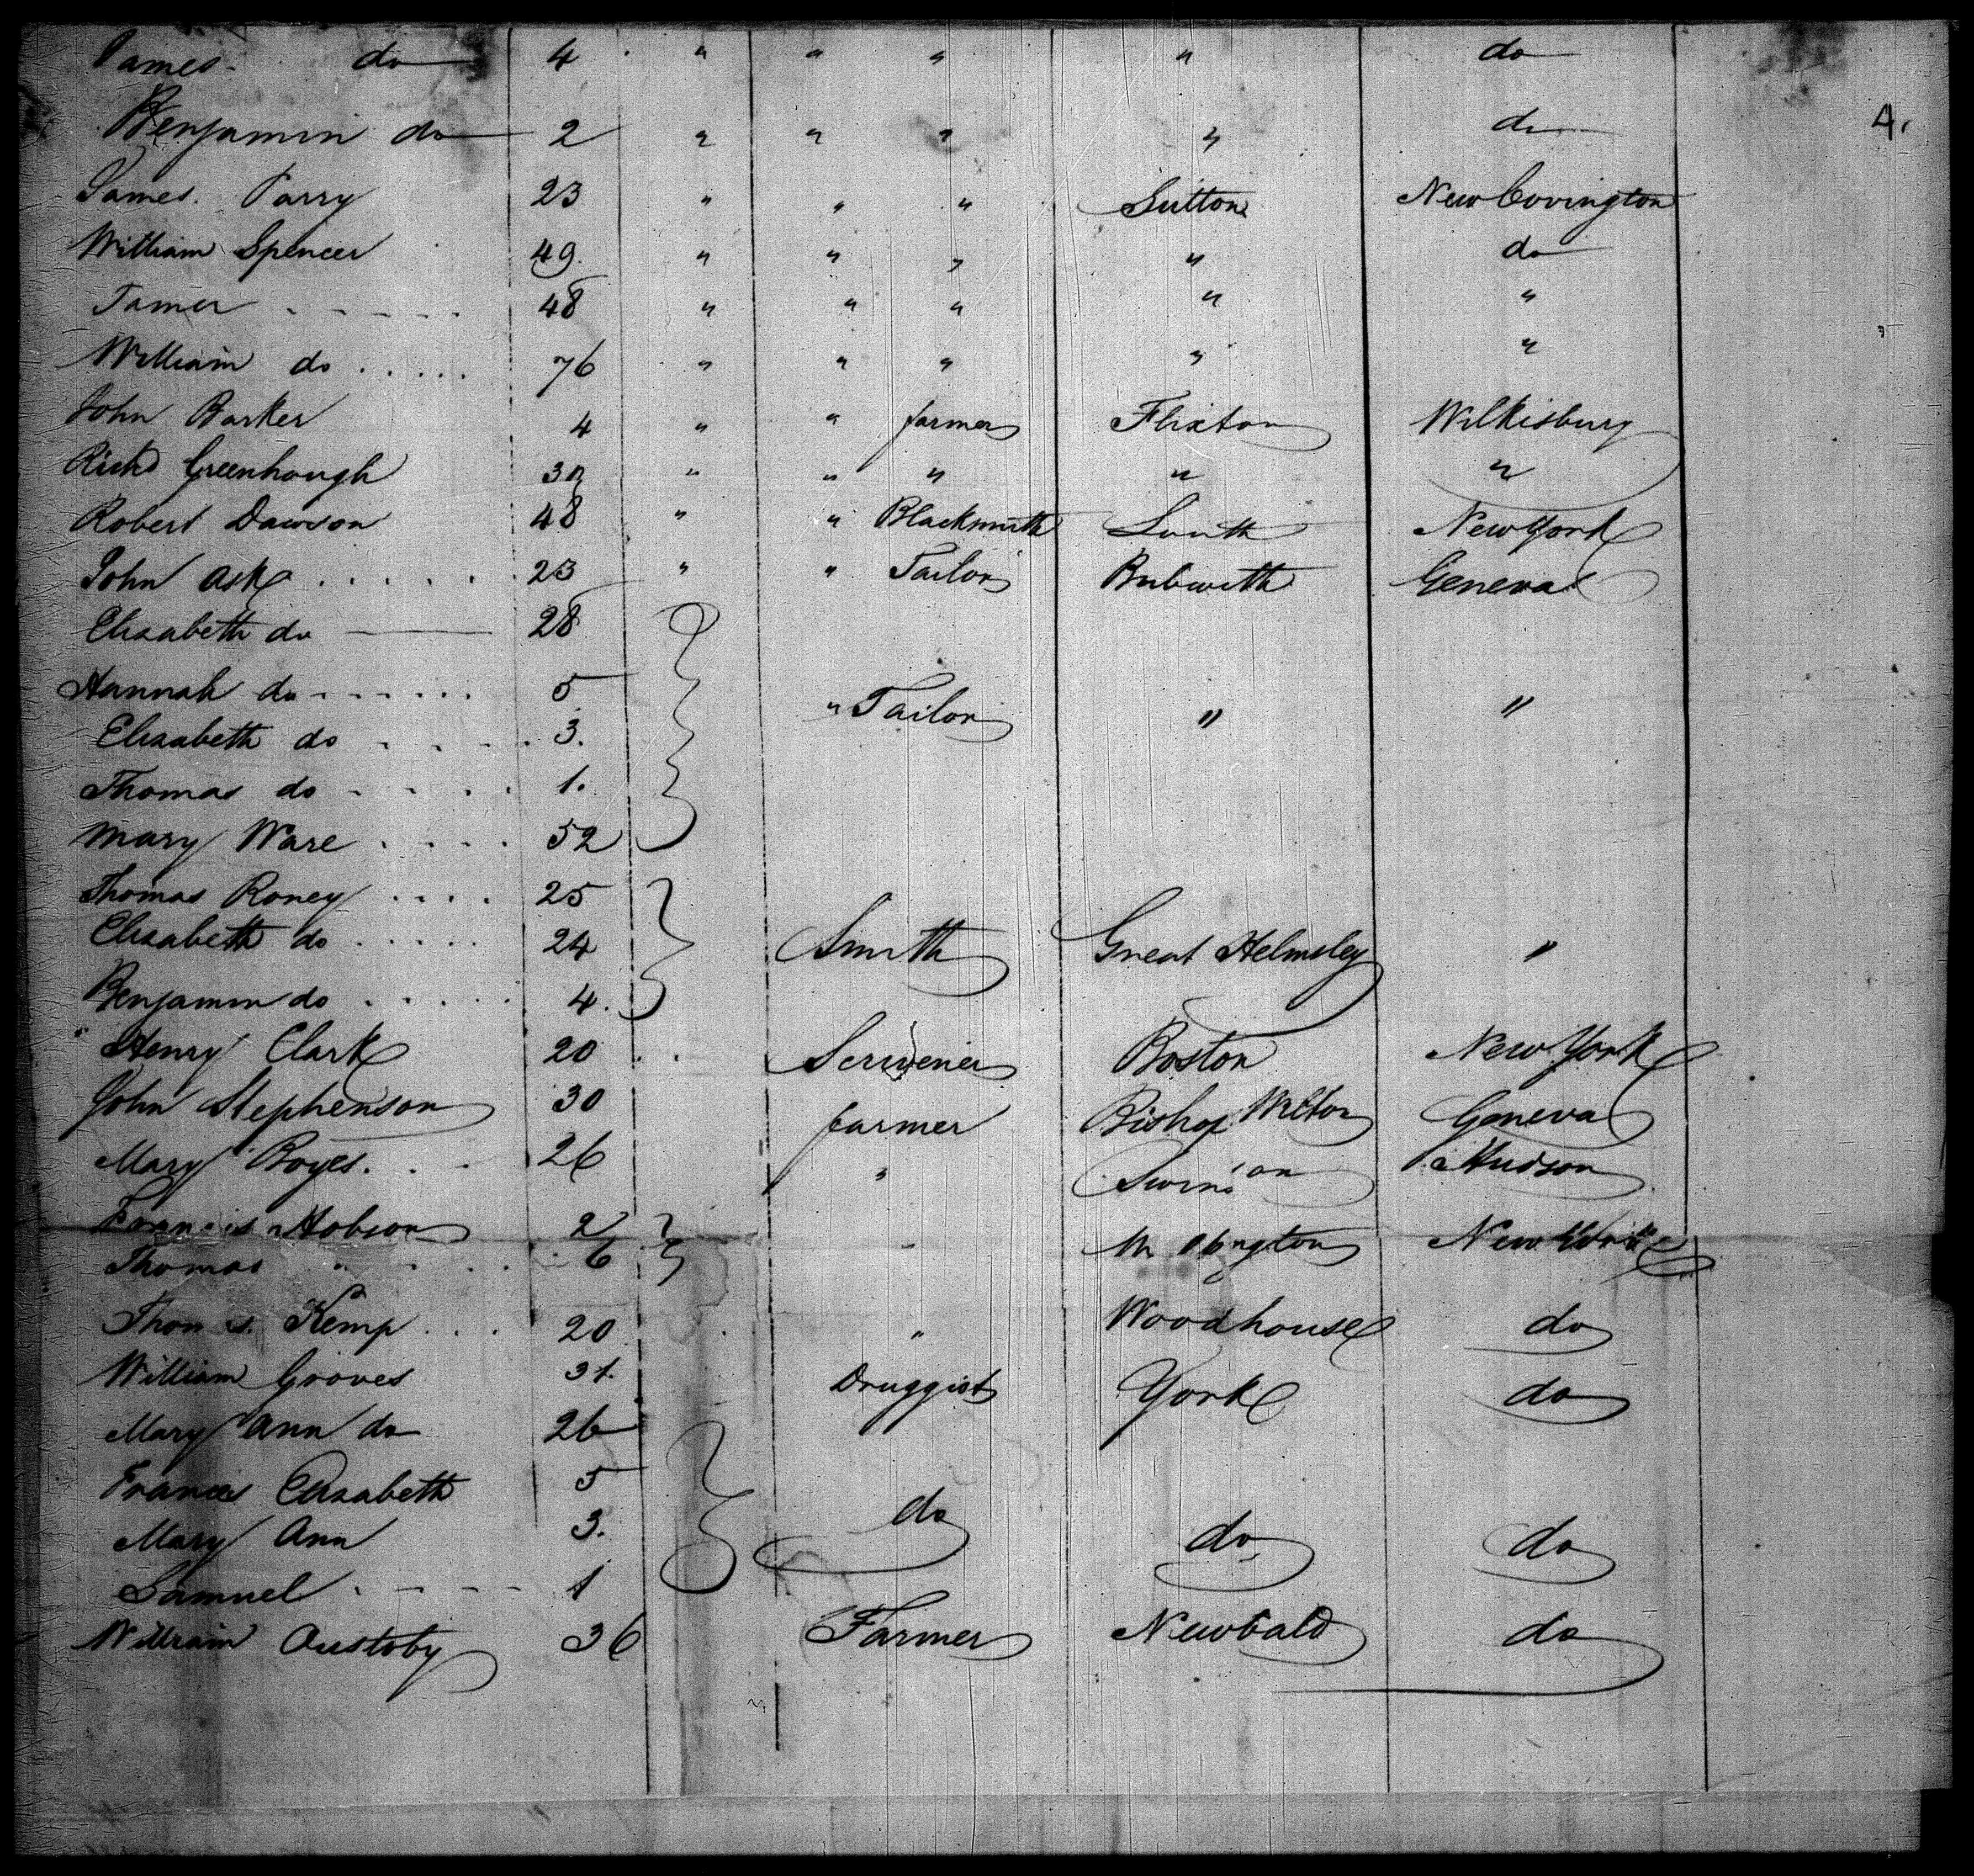 James do 4 " " " " do
Benjamin do 2 " " " " do
4.
James Parry 23 " " " Sutton New Covington
William Spencer 49 " " " " do
Tamer 48 " " " " "
William do 76 " " " " "
John Barker 4 " " farmer Flixton Wilkisburg
Richd Greenhough 32 " " " " "
Robert Dawson 48 " " Blacksmith Louth New York
John Ask 23 " " Tailor Bubwith Geneva
Elizabeth do 28
Hannah do 5 " Tailor " "
Elizabeth do 3.
Thomas do 1.
Mary Ware 52
Thomas Roney 25
Elizabeth do 24 Smith Great Helmsley "
Benjamin do 4.
Henry Clark 20 Scrivener Boston New York
John Stephenson 30 farmer Bishop Wilton Geneva
Mary Boyes. 26 " Hudson
Francis Hobson 2 " New York
Thomas " 6
Thomas Kemp 20 " Woodhouse do
William Groves 31. Druggist York do
Mary Ann do 26
Frances Elizabeth 5
Mary Ann 3. do do do
Samuel 1
William Oustoby 36 Farmer Newbald do